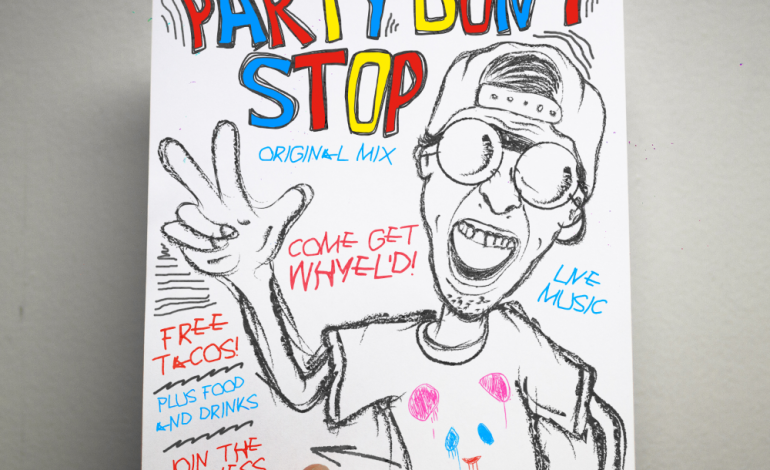 PARTY DON'T
STOP
ORIGINAL MIX
COME GET
WHYEL'D!
LIVE
MUSIC
FREE
TACOS!
PLUS FOOD
AND DRINKS
JOIN THE